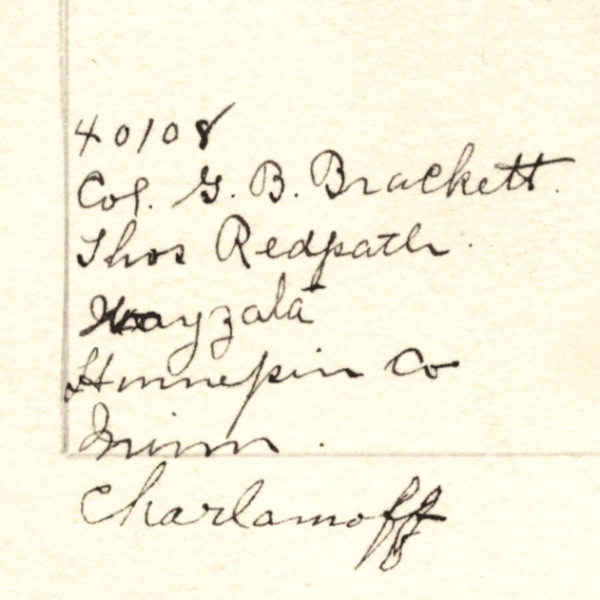 40108
Col. G. B. Brackett.
Thos Redpath.
Wayzata
Hennepin Co
Minn.
Charlamoff